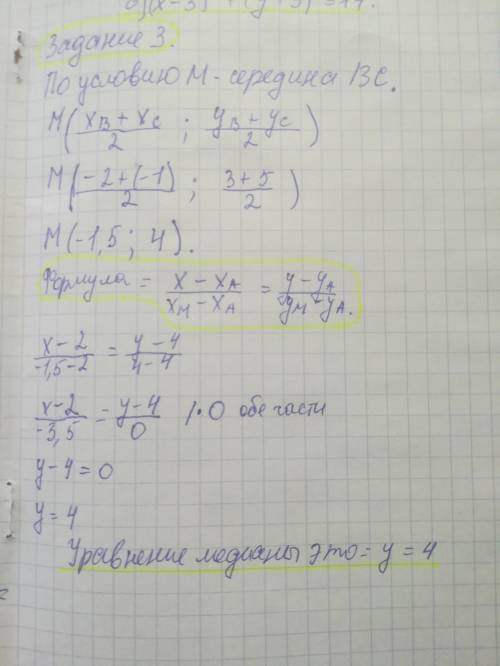 Задание 3.
По условию М - середина ВС.
М(xв + xс / 2 ; yв + yс / 2)
М(-2+(-1) / 2 ; 3+5 / 2)
М(-1,5; 4).
Формула = x - xА / xм - xА = y - yА / yм - yА.
x-2 / -1,5-2 = y-4 / 4-4
x-2 / -3,5 = y-4 / 0 | · 0 обе части
y-4=0
y=4
Уравнение медианы это = y = 4